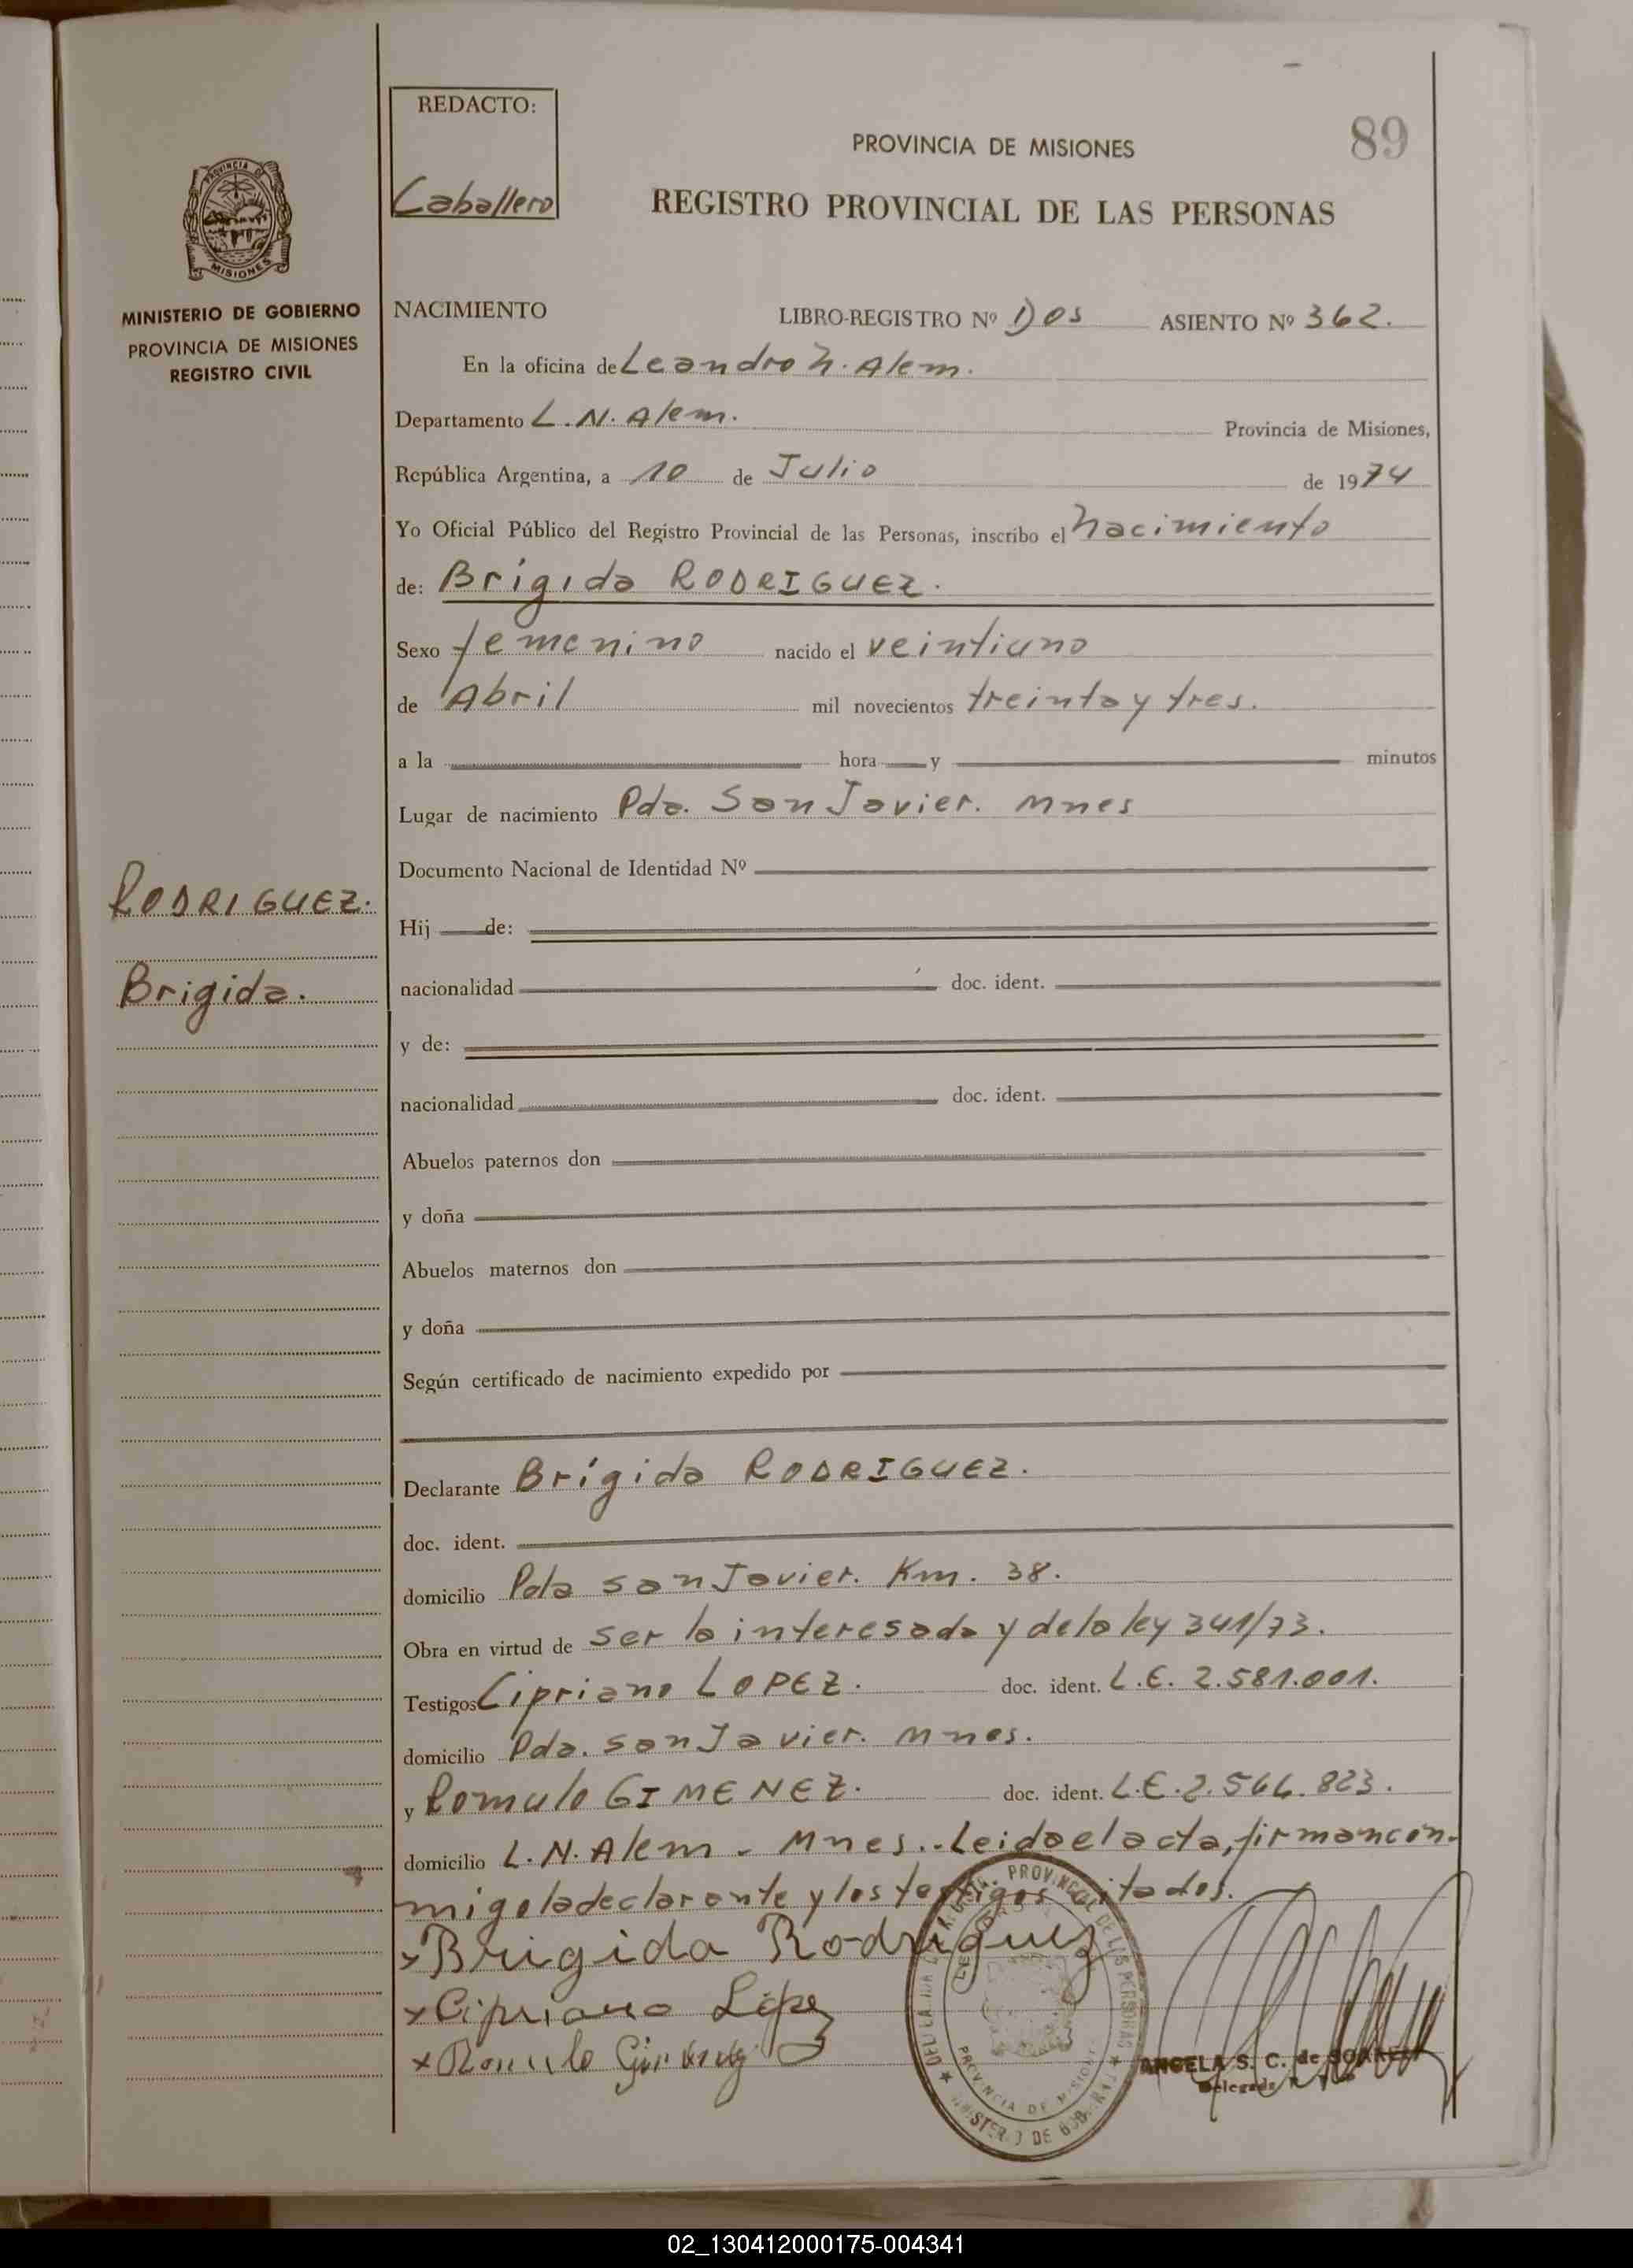 REDACTO:
Caballero
PROVINCIA DE MISIONES
89
REGISTRO PROVINCIAL DE LAS PERSONAS
PROVINCIA DE
MISIONES
MINISTERIO DE GOBIERNO
PROVINCIA DE MISIONES
REGISTRO CIVIL
NACIMIENTO LIBRO-REGISTRO Nº Dos ASIENTO Nº 362.
En la oficina de Leandro N. Alem.
Departamento L.N. Alem. Provincia de Misiones,
República Argentina, a 10 de Julio de 1974
Yo Oficial Público del Registro Provincial de las Personas, inscribo el Nacimiento
de: Brígida RODRIGUEZ.
Sexo femenino nacido el veintiuno
de Abril mil novecientos treinta y tres.
a la hora y minutos
Lugar de nacimiento Pda. San Javier. Mnes
Documento Nacional de Identidad Nº
RODRIGUEZ.
Hij de:
Brigida.
nacionalidad doc. ident.
y de:
nacionalidad doc. ident.
Abuelos paternos don
y doña
Abuelos maternos don
y doña
Según certificado de nacimiento expedido por
Declarante Brígida RODRIGUEZ.
doc. ident.
domicilio Pda San Javier. Km. 38.
Obra en virtud de ser la interesada y de la ley 341/73.
Testigos Cipriano LOPEZ. doc. ident. L.E. 2.581.001.
domicilio Pda. San Javier. Mnes.
y Romulo GIMENEZ. doc. ident. L.E. 2.566.823.
domicilio L.N. Alem - Mnes.- Leida el acta, firman con-
migo la declarante y los testigos citados.
x Brigida Rodriguez
x Cipriano López
x Romulo Gimenez
ANGELA S. C. de
02_130412000175-004341